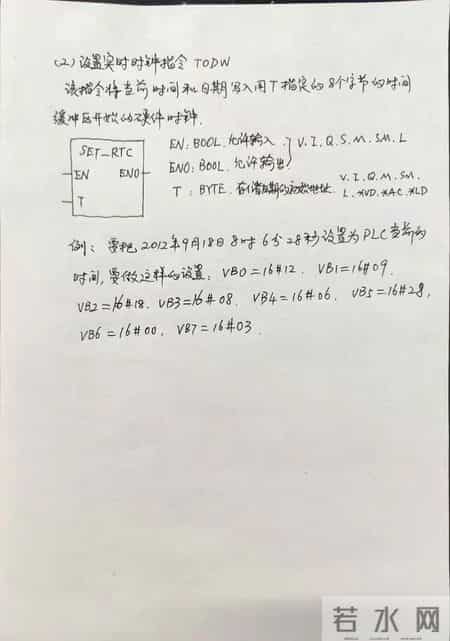 (2) 设置实时时钟指令 TODW
该指令将当前时间和日期写入用T指定的8个字节的时间
缓冲区开始的硬件时钟.
SET_RTC
EN ENO
T
EN: BOOL. 允许输入
ENO: BOOL. 允许输出
V. I. Q. S. M. SM. L
T: BYTE. 存储日期的初始地址. V. I. Q. M. SM.
L. *VD. *AC. *LD
例: 要把2012年9月18日8时6分28秒设置为PLC当前的
时间, 要做这样的设置: VB0=16#12. VB1=16#09.
VB2=16#18. VB3=16#08. VB4=16#06. VB5=16#28,
VB6=16#00. VB7=16#03.
若水网